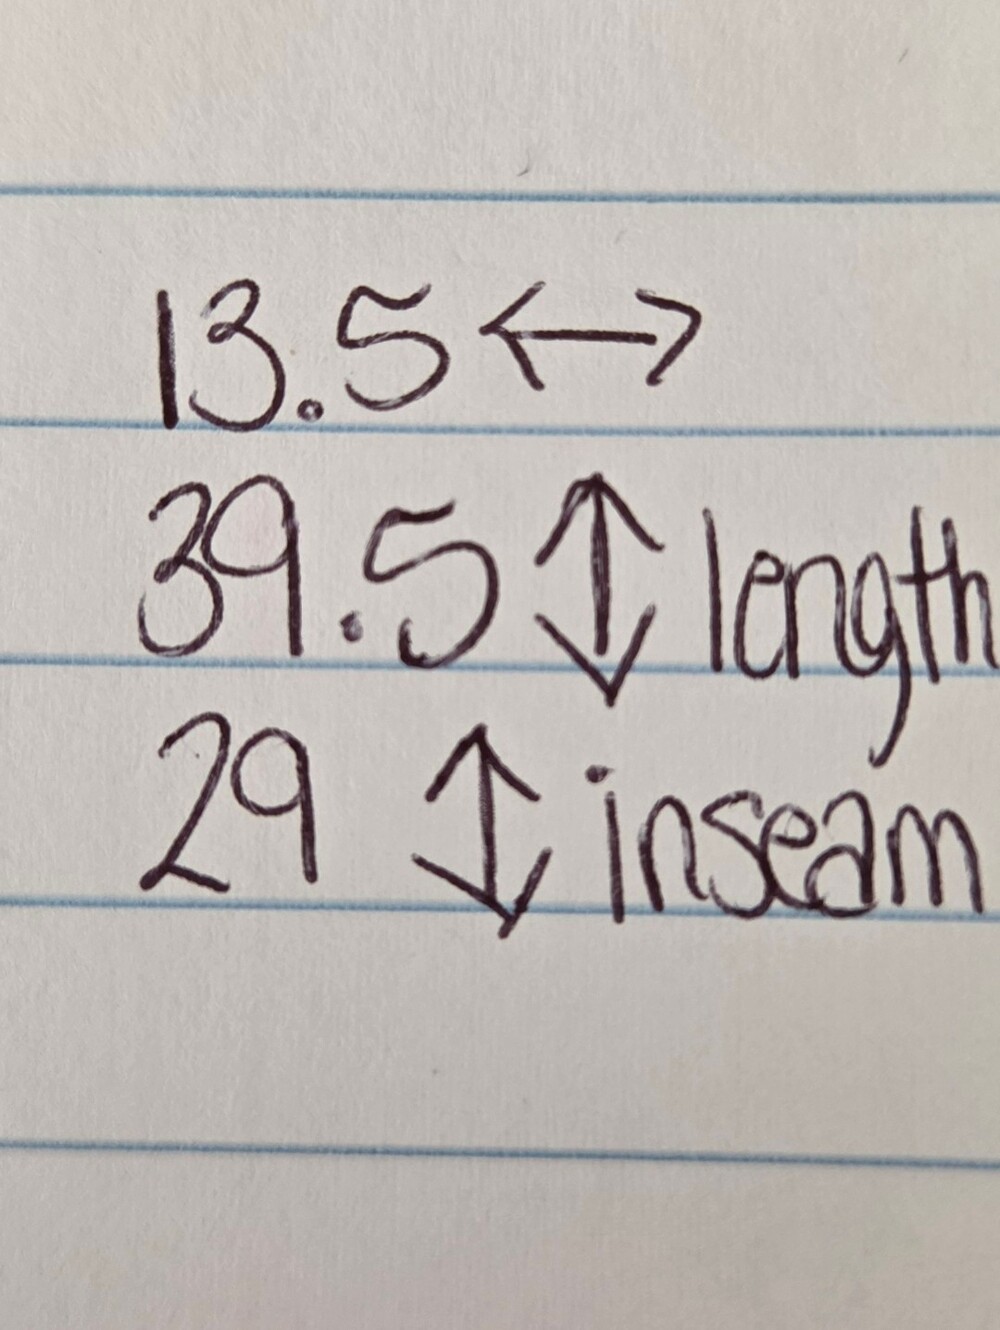 13.5 ↔
39.5 ↕ length
29 ↕ inseam